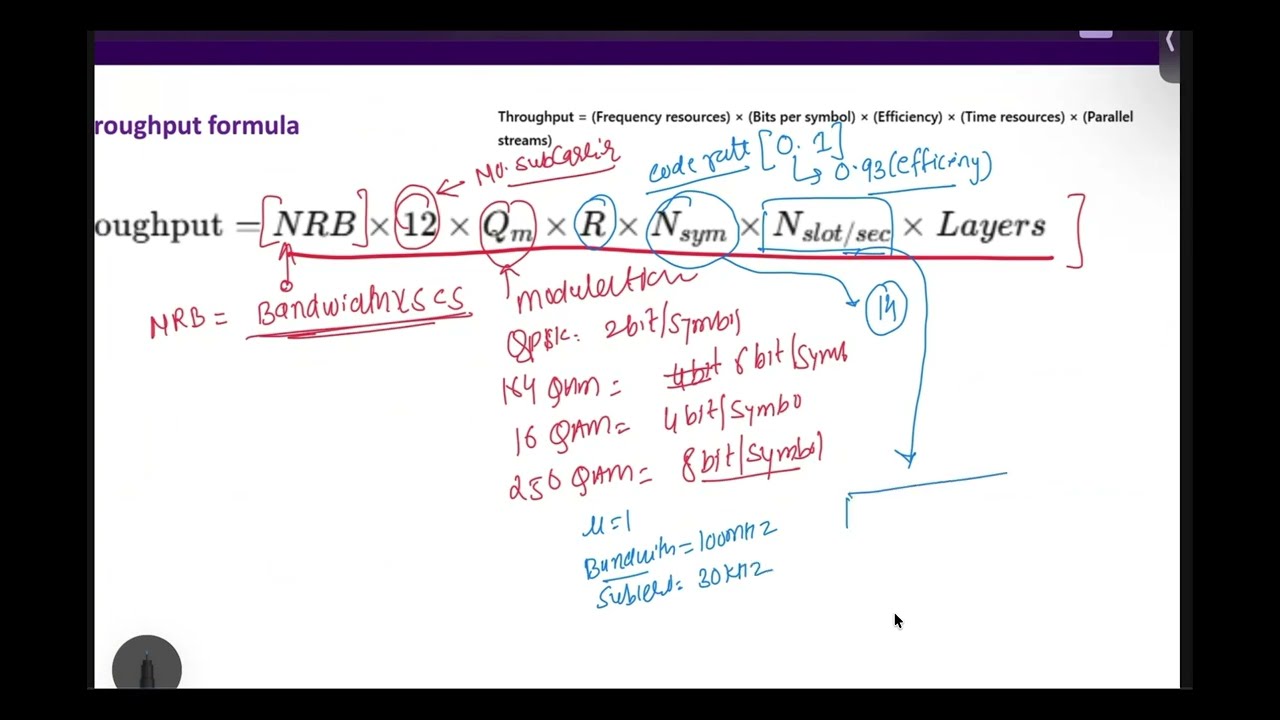 Throughput = (Frequency resources) × (Bits per symbol) × (Efficiency) × (Time resources) × (Parallel
streams)
roughput formula
No. SubCarrir
code ratt [0. 1]
0.93(efficiny)
oughput = [NRB] × 12 × Qm × R × Nsym × Nslot/sec × Layers ]
NRB = Bandwidth x SCS
modulection
14
QPSK: 2bit/Symbol
164 QAM = 4bit 6 bit/Symb
16 QAM = 4bit/Symbo
250 QAM = 8bit/Symbol
μ=1
Bandwith = 100MHz
30KHz